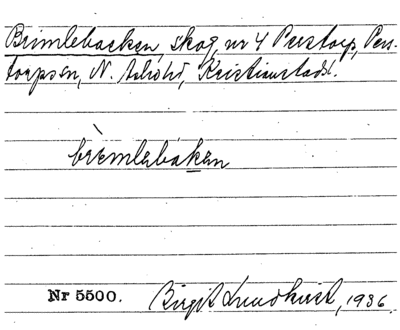 Brimlebacken, skog, nr 4 Perstorp, Pers-
torps sn, N. Åsbo hd, Kristianstads l.
brìmlebákan
Nr 5500. Birgit Lundkvist, 1936.